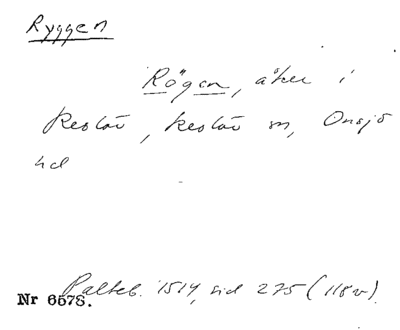 Ryggen
Rögen, åker i
Reslöv, Reslöv sn, Onsjö
hd
Palteb. 1514, sid 275 (118v).
Nr 6578.